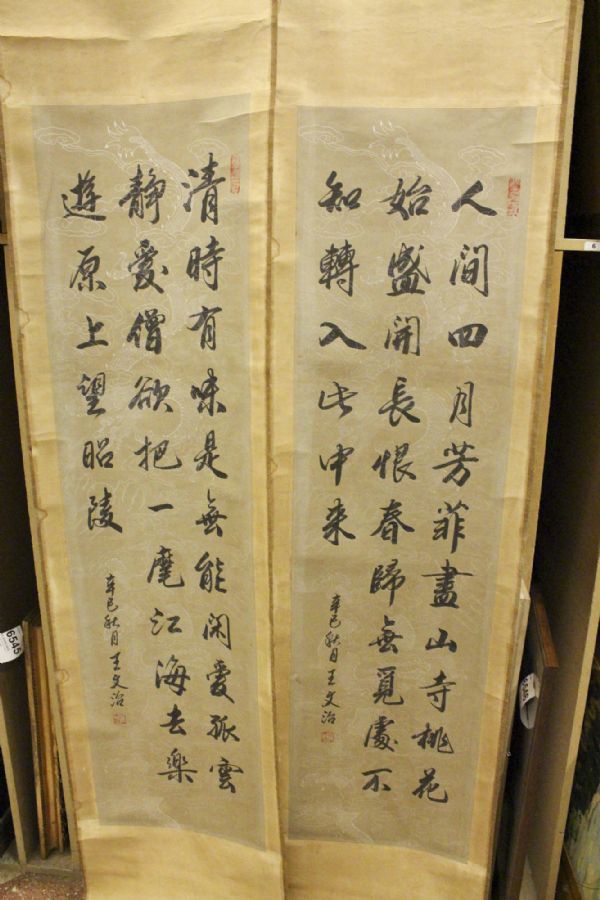 人間四月芳菲盡山寺桃花
始盛開長恨春歸無覓處不
知轉入此中來
辛巳秋月王文治
清時有味是無能閑愛孤雲
靜愛僧欲把一麾江海去樂
遊原上望昭陵
辛巳秋月王文治
6545
6